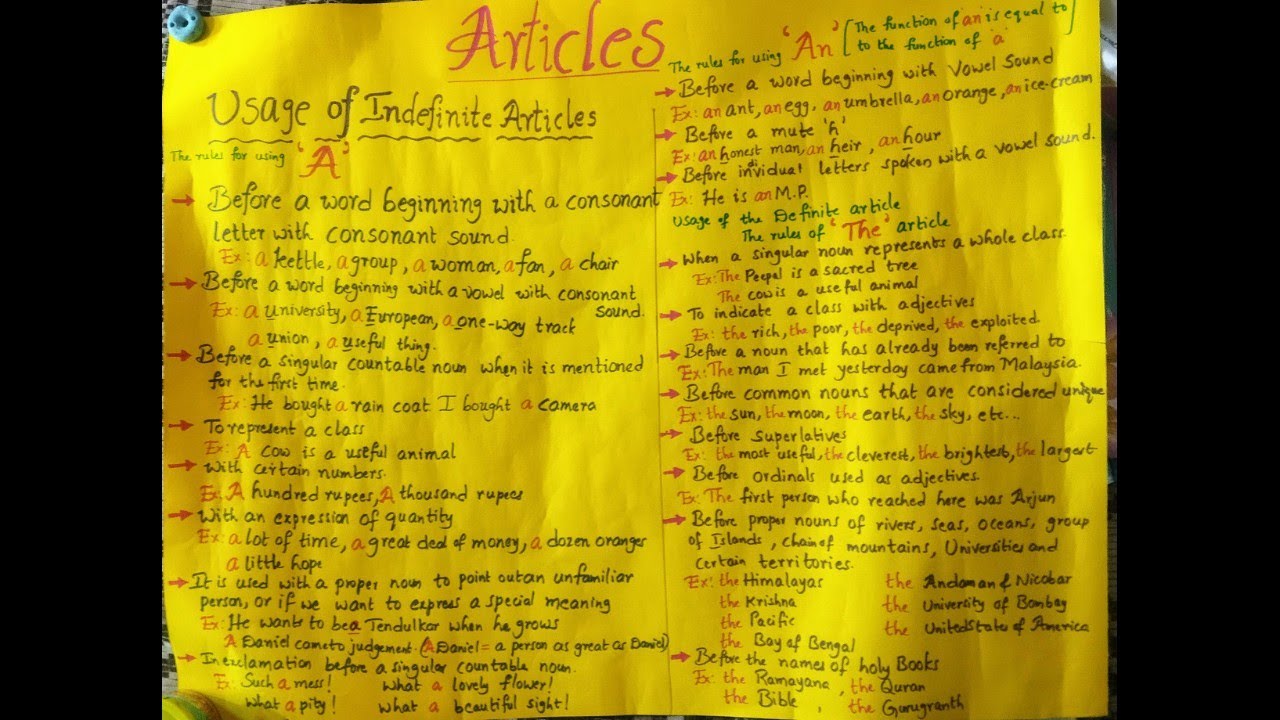 Articles
Usage of Indefinite Articles
The rules for using 'A'
→ Before a word beginning with a consonant
letter with consonant sound.
Ex: a kettle, a group, a woman, a fan, a chair
→ Before a word beginning with a vowel with consonant
sound.
Ex: a university, a European, a one-way track
a union, a useful thing.
→ Before a singular countable noun when it is mentioned
for the first time.
Ex: He bought a rain coat I bought a camera
→ To represent a class
Ex: A cow is a useful animal
→ With certain numbers.
Ex: A hundred rupees, A thousand rupees
→ With an expression of quantity
Ex: a lot of time, a great deal of money, a dozen oranges
a little hope
→ It is used with a proper noun to point out an unfamiliar
person, or if we want to express a special meaning
Ex: He wants to be a Tendulkar when he grows
A Daniel came to judgement. (A Daniel = a person as great as Daniel)
→ In exclamation before a singular countable noun.
Ex: Such a mess! what a lovely flower!
what a pity! what a beautiful sight!
The rules for using 'An' [The function of 'an' is equal to
to the function of 'a']
→ Before a word beginning with Vowel Sound
Ex: an ant, an egg, an umbrella, an orange, an ice-cream
→ Before a mute 'h'
Ex: an honest man, an heir, an hour
→ Before individual letters spoken with a vowel sound.
Ex: He is an M.P.
Usage of the Definite article
The rules of 'The' article
→ When a singular noun represents a whole class.
Ex: The Peepal is a sacred tree
The cow is a useful animal
→ To indicate a class with adjectives
Ex: the rich, the poor, the deprived, the exploited.
→ Before a noun that has already been referred to
Ex: The man I met yesterday came from Malaysia.
→ Before common nouns that are considered unique
Ex: the sun, the moon, the earth, the sky, etc...
→ Before Superlatives
Ex: the most useful, the cleverest, the brightest, the largest
→ Before ordinals used as adjectives.
Ex: The first person who reached here was Arjun
→ Before proper nouns of rivers, seas, oceans, group
of Islands, chain of mountains, Universities and
certain territories.
Ex: the Himalayas the Andaman & Nicobar
the Krishna the University of Bombay
the Pacific the United States of America
the Bay of Bengal
→ Before the names of holy Books
Ex: the Ramayana, the Quran
the Bible, the Gurugranth